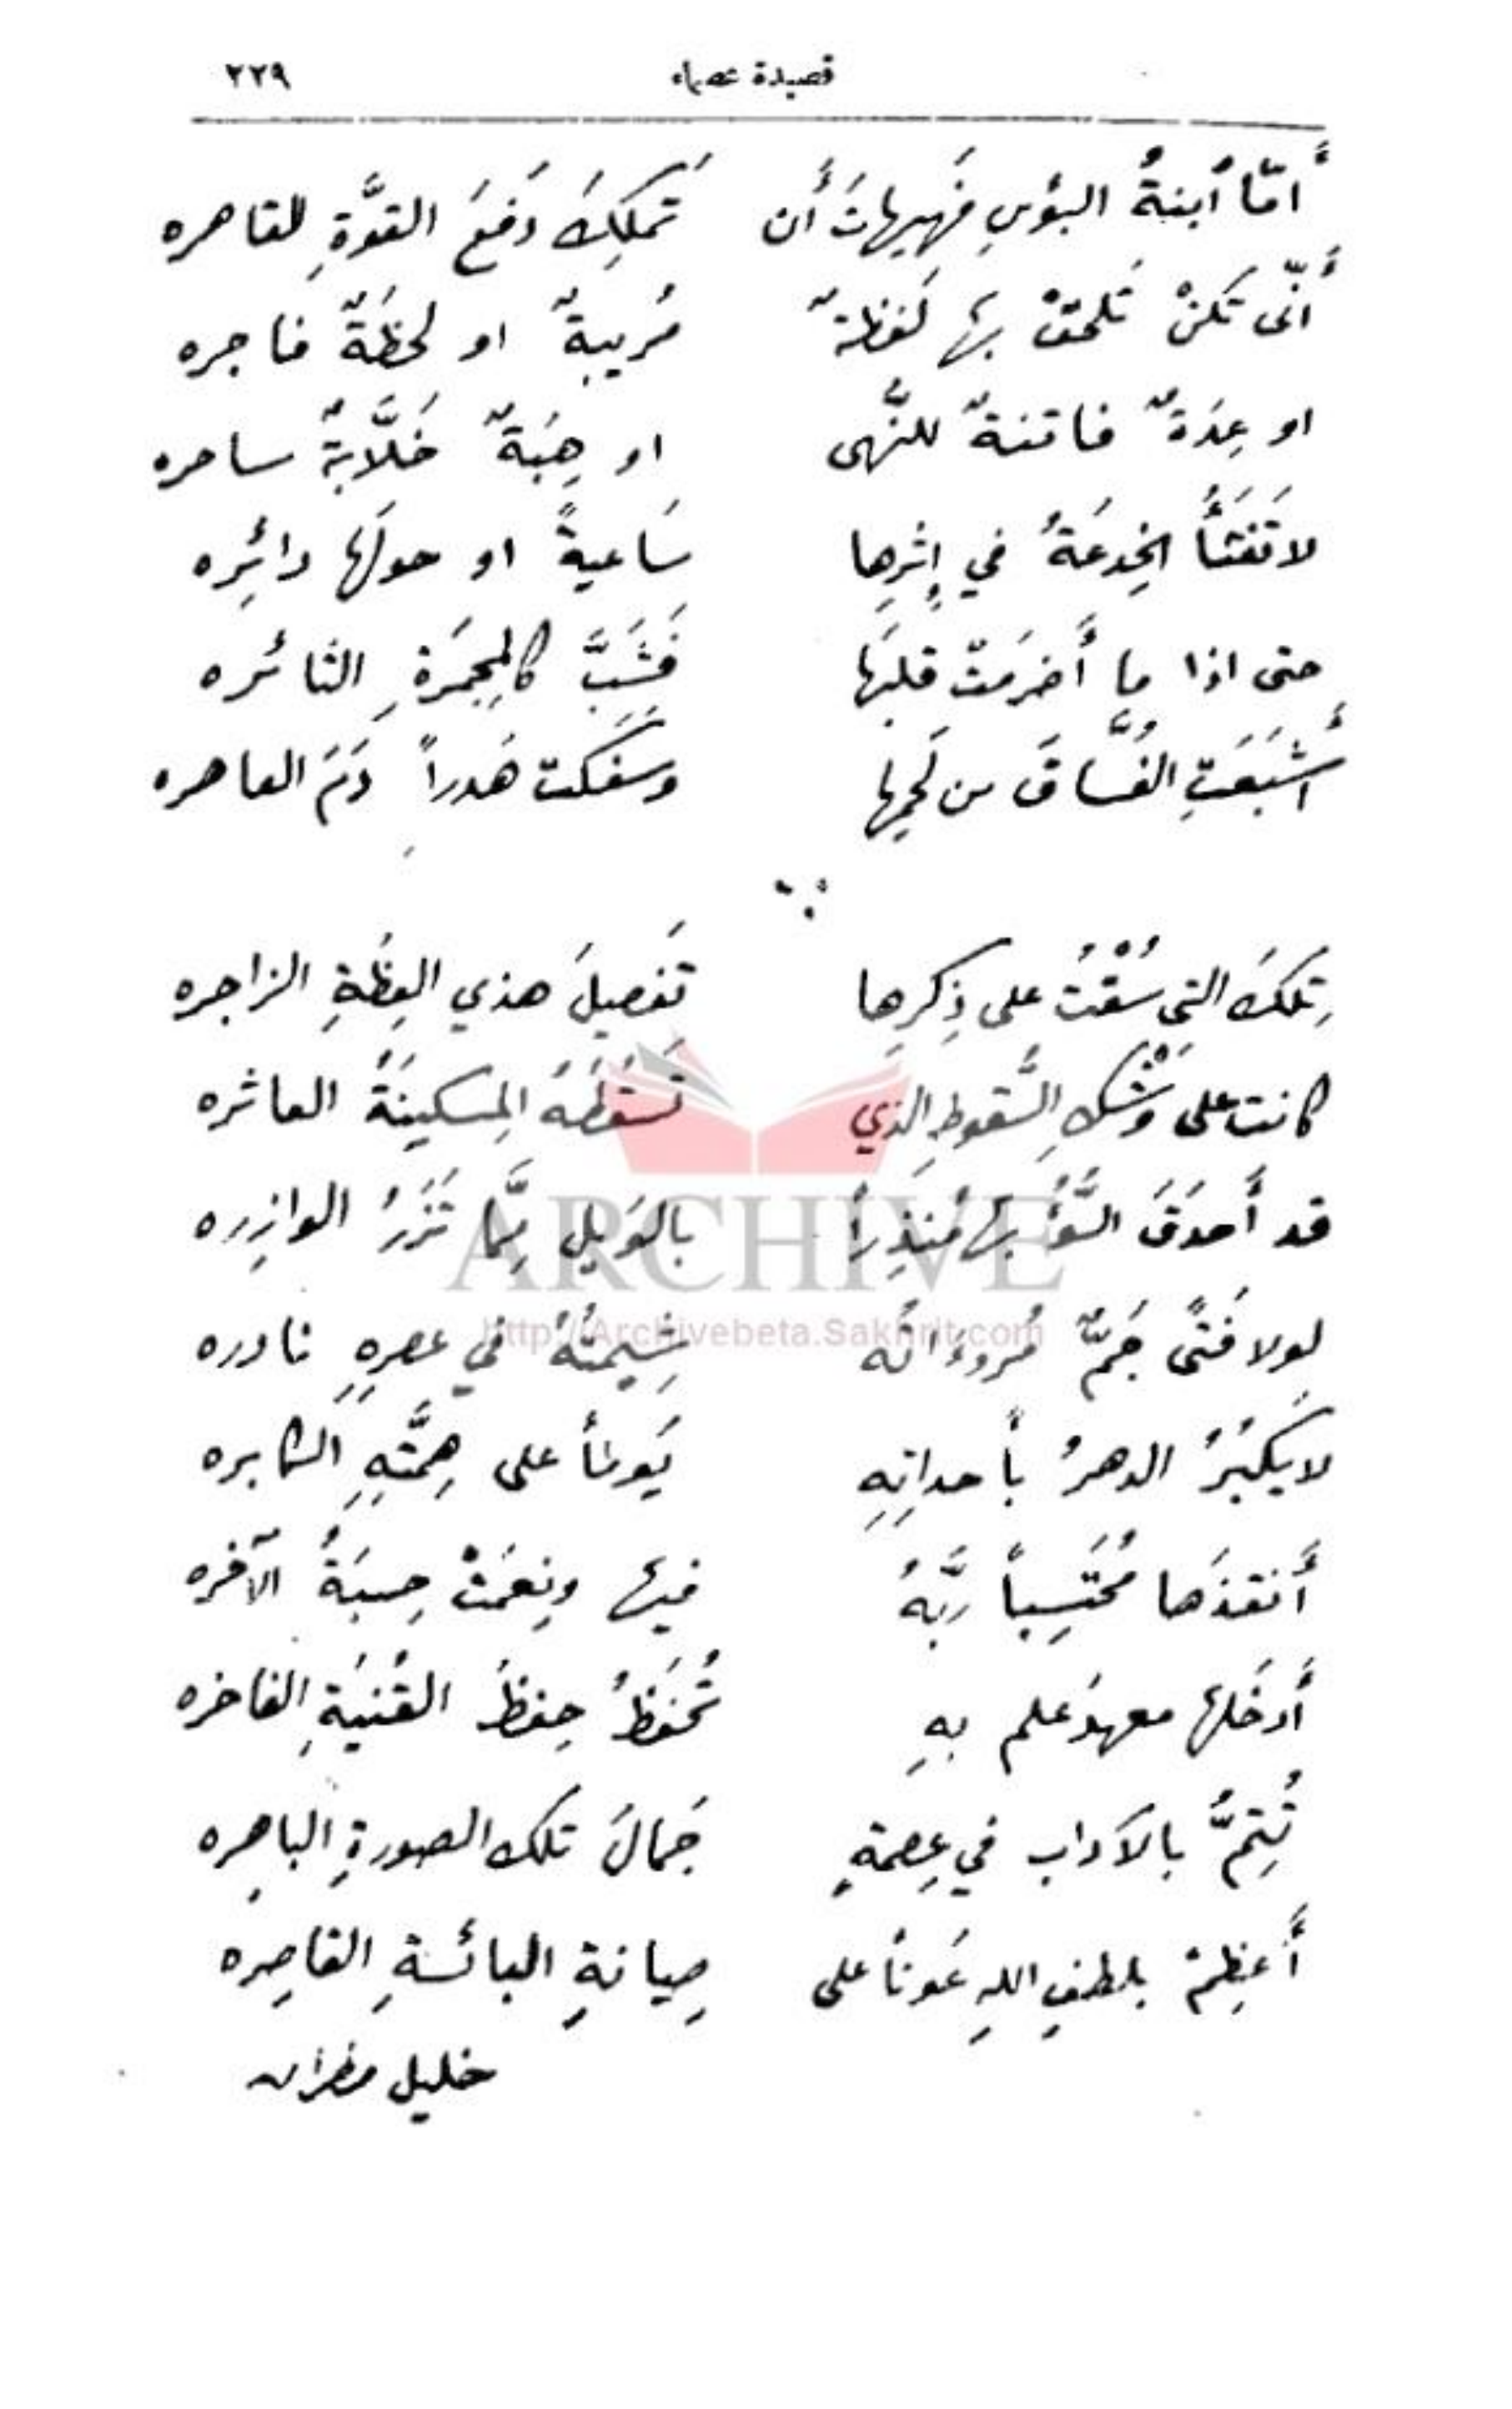 قصيدة عصماء ٢٢٩
أَمّا ٱبنةُ البؤسِ فَهيهاتَ أَن تَملِكَ دَفعَ القوَّةِ القاهره
أَنّى تَكنْ تَلحقْ بها لَفظةٌ مُريبةٌ او لحظَةٌ فاجره
او عِدَةٌ فاتنةٌ للنُّهى او هِبَةٌ خَلَّابةٌ ساحره
لا تَفتَأُ الخِدعَةُ في إِثرِها سَاعيةً او حولَها دائِره
حتى اذا ما أَضرَمَتْ قلبَها فَشَبَّ كالمِجمَرَةِ الثائره
أَشبَعَتِ الفُسَّاقَ من لَحمِها وسَفَكَت هَدراً دَمَ العاهره
تِلكَ التي سُقْتُ على ذِكرِها تَفصيلَ هذي العِظَةِ الزاجره
كانت على وَشْكِ السُّقوطِ الذي تَسقُطُهُ المِسكينَةُ العاثره
قد أَحدَقَ السُّوءُ بها مُنذِراً بالوَيلِ مِمَّا تَزَرُ الوازِره
لولا فَتًى جَمٌّ مُروءَاتُه شِيمتُهُ في عصرِهِ نادره
لا يَكبُرُ الدهرُ بأَحداثِهِ يَوماً على هِمَّتِهِ الكابره
أَنقذَها مُحتَسِباً رَبَّهُ فيها ونِعمَتْ حِسبَةُ الآخره
أَدخَلها معهدَ علم بهِ تُحفَظُ حِفظَ القُنيَةِ الفاخره
تُتِمُّ بالآداب في عِصمةٍ جَمالَ تلك الصورةِ الباهِره
أَعظِمْ بلطفِ اللهِ عَوناً على صِيانةِ البائسةِ القاصِره
خليل مطران
ARCHIVE
http://Archivebeta.Sakhrit.com